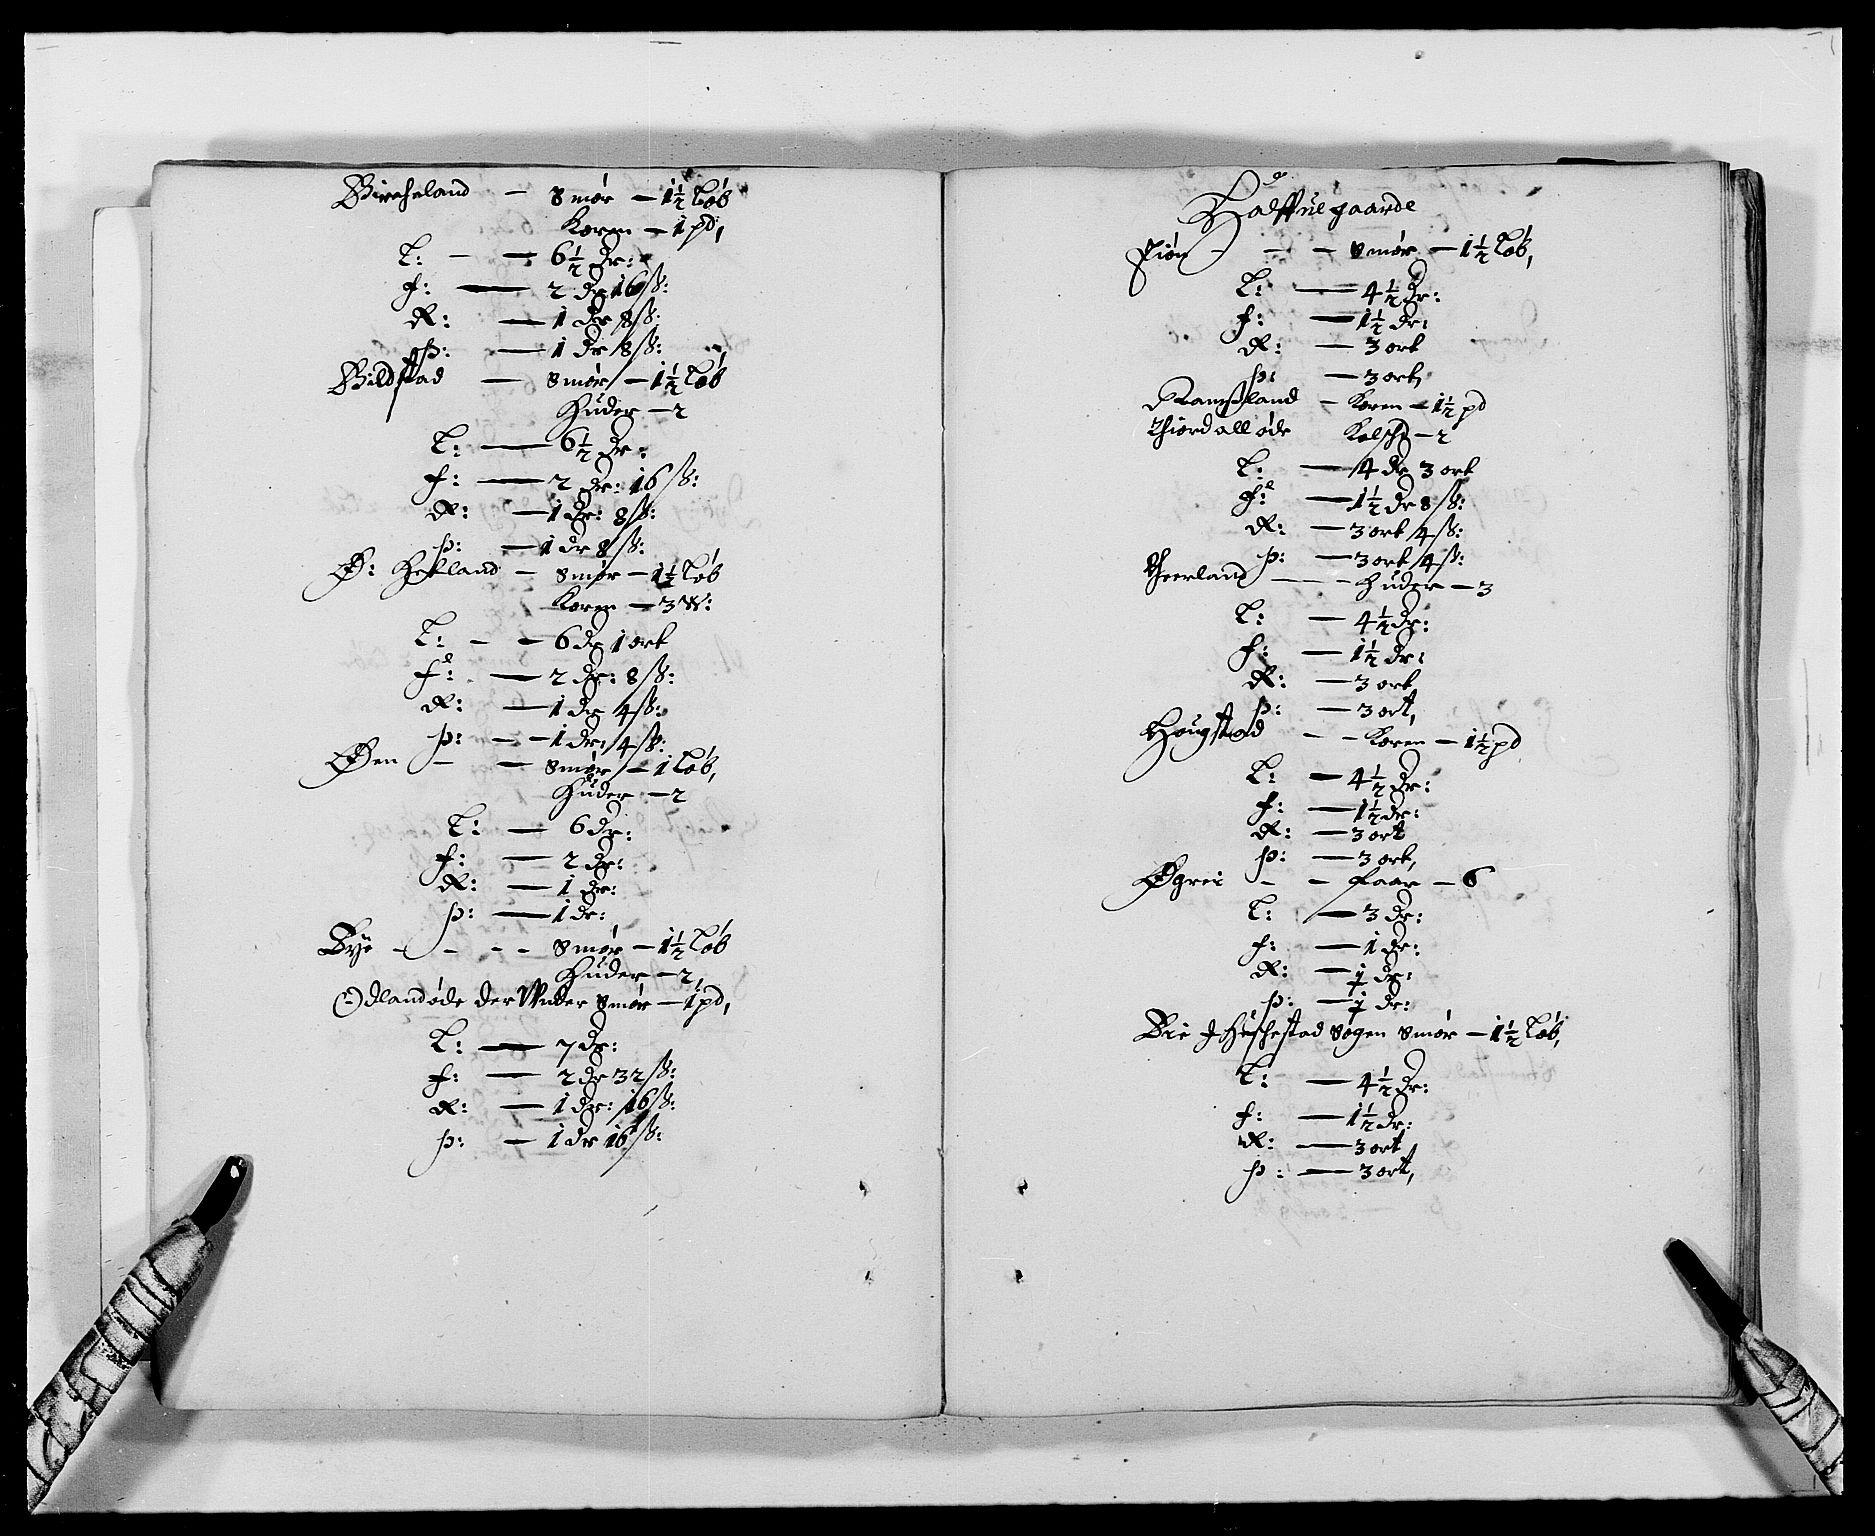 Bircheland — Smør — 1½ Løb
Koren — 1 pd,
L: — — 6½ dr:
f: — 2 dr 16 ß:
R: — 1 dr 8 ß:
þ: — 1 dr 8 ß:
Bildstad — Smør — 1½ Løb
Huder — 2
L: — 6½ dr:
f: — 2 dr: 16 ß:
R: — 1 dr: 8 ß:
þ: — 1 dr 8 ß:
Ø: Hetland — Smør — 1½ Løb
Koren — 3 W:
L: — — 6 dr 1 ort
f: — 2 dr: 8 ß:
R: — 1 dr 4 ß:
þ: — — 1 dr: 4 ß:
Øen — — Smør — 1 Løb,
Huder — 2
L: — 6 dr:
f: — 2 dr:
R: — 1 dr:
þ: — 1 dr:
Bye — — — — Smør — 1½ Løb
Huder — 2,
Odlandøde der Under Smør — 1 pd,
L: — 7 dr:
f: — 2 dr 32 ß:
R: — 1 dr: 16 ß:
þ: — 1 dr 16 ß:
Halffue gaarde
— — Smør — 1½ Løb,
L: — 4½ dr:
f: — 1½ dr:
R: — 3 ort
þ: — 3 ort,
Ramsland — Koren — 1½ pd
Thiordall øde Kalschd — 2
L: — 4 dr 3 ort
f: — 1½ dr 8 ß:
R: — 3 ort 4 ß:
þ: — 3 ort 4 ß:
Heerland — — — Huder — 3
L: — 4½ dr:
f: — 1½ dr:
R: — 3 ort
þ: — 3 ort,
Hougstad — — Koren — 1½ pd
L: — 4½ dr:
f: — 1½ dr:
R: — 3 ort
þ: — 3 ort,
Øgrei — — faar — 6
L: — 3 dr:
f: — 1 dr:
R: — ½ dr:
þ: — ½ dr:
Bie J Heschestad Sogen Smør — 1½ Løb,
L: — 4½ dr:
f: — 1½ dr:
R: — 3 ort
þ: — 3 ort,